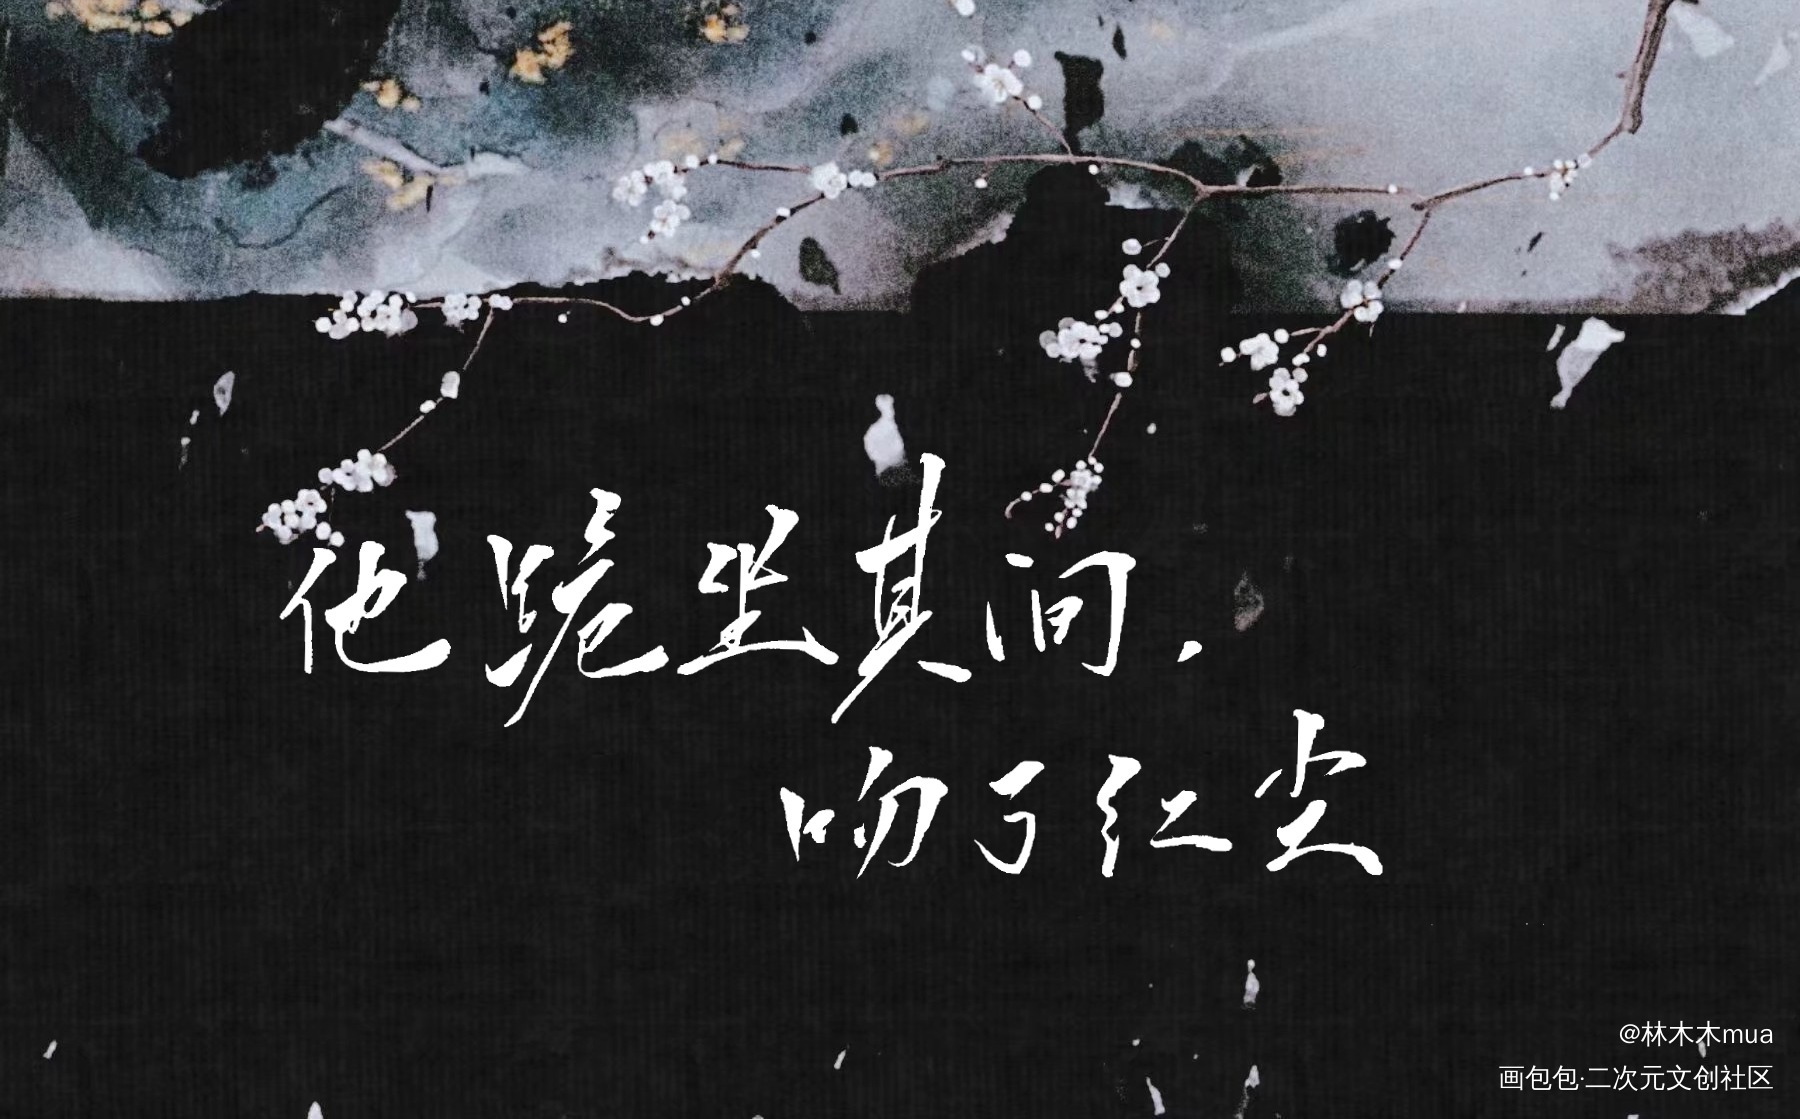 他跪坐其间，
吻了红尘
@林木木mua
画包包·二次元文创社区